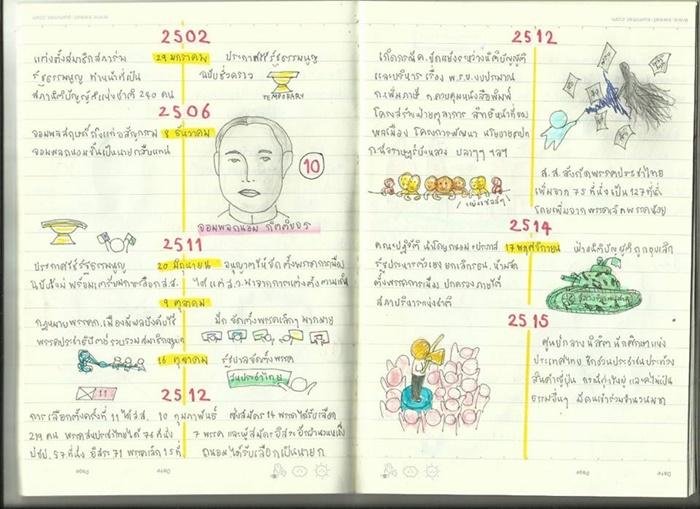 2502
แต่งตั้งสมาชิกสภาร่าง
รัฐธรรมนูญ ทำหน้าที่เป็น
สภานิติบัญญัติแห่งชาติ 240 คน
29 มกราคม
ประกาศใช้รัฐธรรมนูญ
ฉบับชั่วคราว
TEMPORARY
2506
จอมพลสฤษดิ์ ถึงแก่อสัญกรรม
จอมพลถนอมขึ้นเป็นนายกสืบแทน
8 ธันวาคม
10
จอมพลถนอม กิตติขจร
2511
ประกาศใช้รัฐธรรมนูญ
ฉบับใหม่ พร้อมเตรียมการเลือก ส.ส.
20 มิถุนายน
อนุญาตให้จัดตั้งพรรคการเมือง
ได้ แต่ ส.ว. มาจากการแต่งตั้ง
9 ตุลาคม
กฎหมายพรรคการเมืองมีผลบังคับใช้
มีการจัดตั้งพรรคเล็กๆ มากมาย
16 ตุลาคม
รัฐบาลจัดตั้งพรรค
สหประชาไทย
11
2512
การเลือกตั้งครั้งที่ 11 ได้ ส.ส.
219 คน พรรคสหประชาไทยได้ 76 ที่นั่ง
ปชป. 57 ที่นั่ง อิสระ 71 พรรคเล็ก 15 ที่
10 กุมภาพันธ์
ส่งสมัคร 14 พรรคได้รับเลือก
7 พรรค และผู้สมัครอิสระอีกจำนวนหนึ่ง
ถนอมได้รับเลือกเป็นนายก
Date
Page
www.sweet-summer.com
2512
เกิดกรณี ค.ขัดแย้งระหว่างนิติบัญญัติ
และบริหาร เรื่อง พ.ร.บ. งบประมาณ
ก.เพิ่มภาษี ก.ควบคุมหนังสือพิมพ์
โครงสร้างฝ่ายตุลาการ สิทธิหน้าที่ของ
พลเมือง โครงการพัฒนา นโยบาย
ปลาๆๆ ฯลฯ
ส.ส. สังกัดพรรคสหประชาไทย
เพิ่มจาก 75 ที่นั่งเป็น 127 ที่นั่ง
โดยเพิ่มจากพรรคเล็กพรรคน้อย
2514
คณะปฏิวัติ นำโดยถนอม + ประภาส
รัฐประหารตัวเอง ยกเลิก รธน. ห้ามจัด
ตั้งพรรคการเมือง ปกครองภายใต้
สภาบริหารแห่งชาติ
17 พฤศจิกายน
ฝ่ายนิติบัญญัติถูกยุบเลิก
2515
ศูนย์กลางนิสิตนักศึกษาแห่ง
ประเทศไทย ชักชวนประชาชนประท้วง
สินค้าญี่ปุ่น กรณีทุ่งใหญ่ และความไม่เป็น
ธรรมอื่นๆ มีคนเข้าร่วมจำนวนมาก
Date
Page